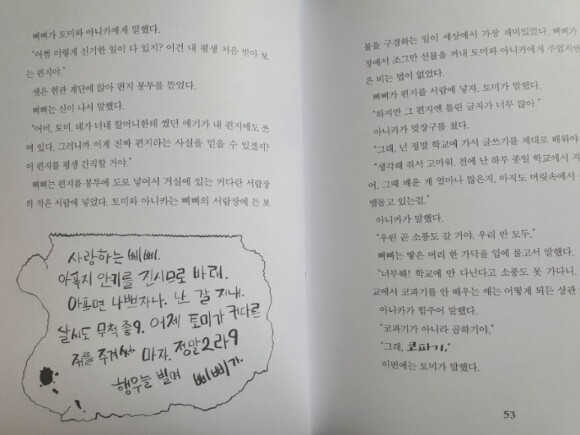 삐삐가 토미와 아니카에게 말했다.
"어쩜 이렇게 신기한 일이 다 있지? 이건 내 평생 처음 받아 보
는 편지야."
셋은 현관 계단에 앉아 편지 봉투를 뜯었다.
삐삐는 신이 나서 말했다.
"어머, 토미, 네가 너네 할머니한테 썼던 얘기가 내 편지에도 쓰
여 있다. 그러니까 이게 진짜 편지라는 사실을 믿을 수 있겠지?
이 편지를 평생 간직할 거야."
삐삐는 편지를 봉투에 도로 넣어서 거실에 있는 커다란 서랍장
의 작은 서랍에 넣었다. 토미와 아니카는 삐삐의 서랍장에 든 보
사랑하는 삐삐.
아푸지 안키를 진시므로 바뤄.
아프면 나쁘자나. 난 잘 지내.
날시도 무척 좋9. 어제 토미가 커다른
쥐를 주겨써 마자. 정말2라9
행우늘 빌며 삐삐가.
물을 구경하는 일이 세상에서 가장 재미있었다. 삐삐가
장에서 조그만 선물을 꺼내 토미와 아니카에게 주었지만
은 비는 법이 없었다.
삐삐가 편지를 서랍에 넣자, 토미가 말했다.
"하지만 그 편지엔 틀린 글자가 너무 많아."
아니카가 맞장구를 쳤다.
"그래, 넌 정말 학교에 가서 글쓰기를 제대로 배워야
"생각해 줘서 고마워. 전에 난 하루 종일 학교에서 지
어, 그때 배운 게 얼마나 많은지, 아직도 머릿속에서
맴돌고 있는걸."
아니카가 말했다.
"우린 곧 소풍도 갈 거야. 우리 반 모두."
삐삐는 땋은 머리 한 가닥을 입에 물고서 말했다.
"너무해! 학교에 안 다닌다고 소풍도 못 가다니.
교에서 코파기를 안 배우는 애는 어떻게 되든 상관
아니카가 힘주어 말했다.
"코파기가 아니라 곱하기야."
"그래, 코파기."
이번에는 토미가 말했다.
53